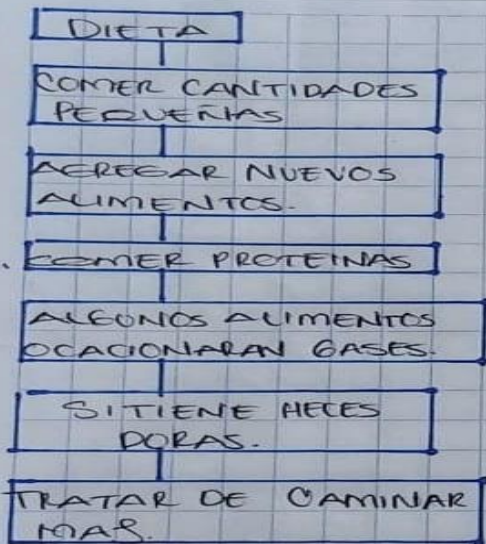 DIETA
COMER CANTIDADES
PEQUEÑAS
AGREGAR NUEVOS
ALIMENTOS.
COMER PROTEINAS
ALGUNOS ALIMENTOS
OCACIONARAN GASES.
SI TIENE HECES
DORAS.
TRATAR DE CAMINAR
MAS.